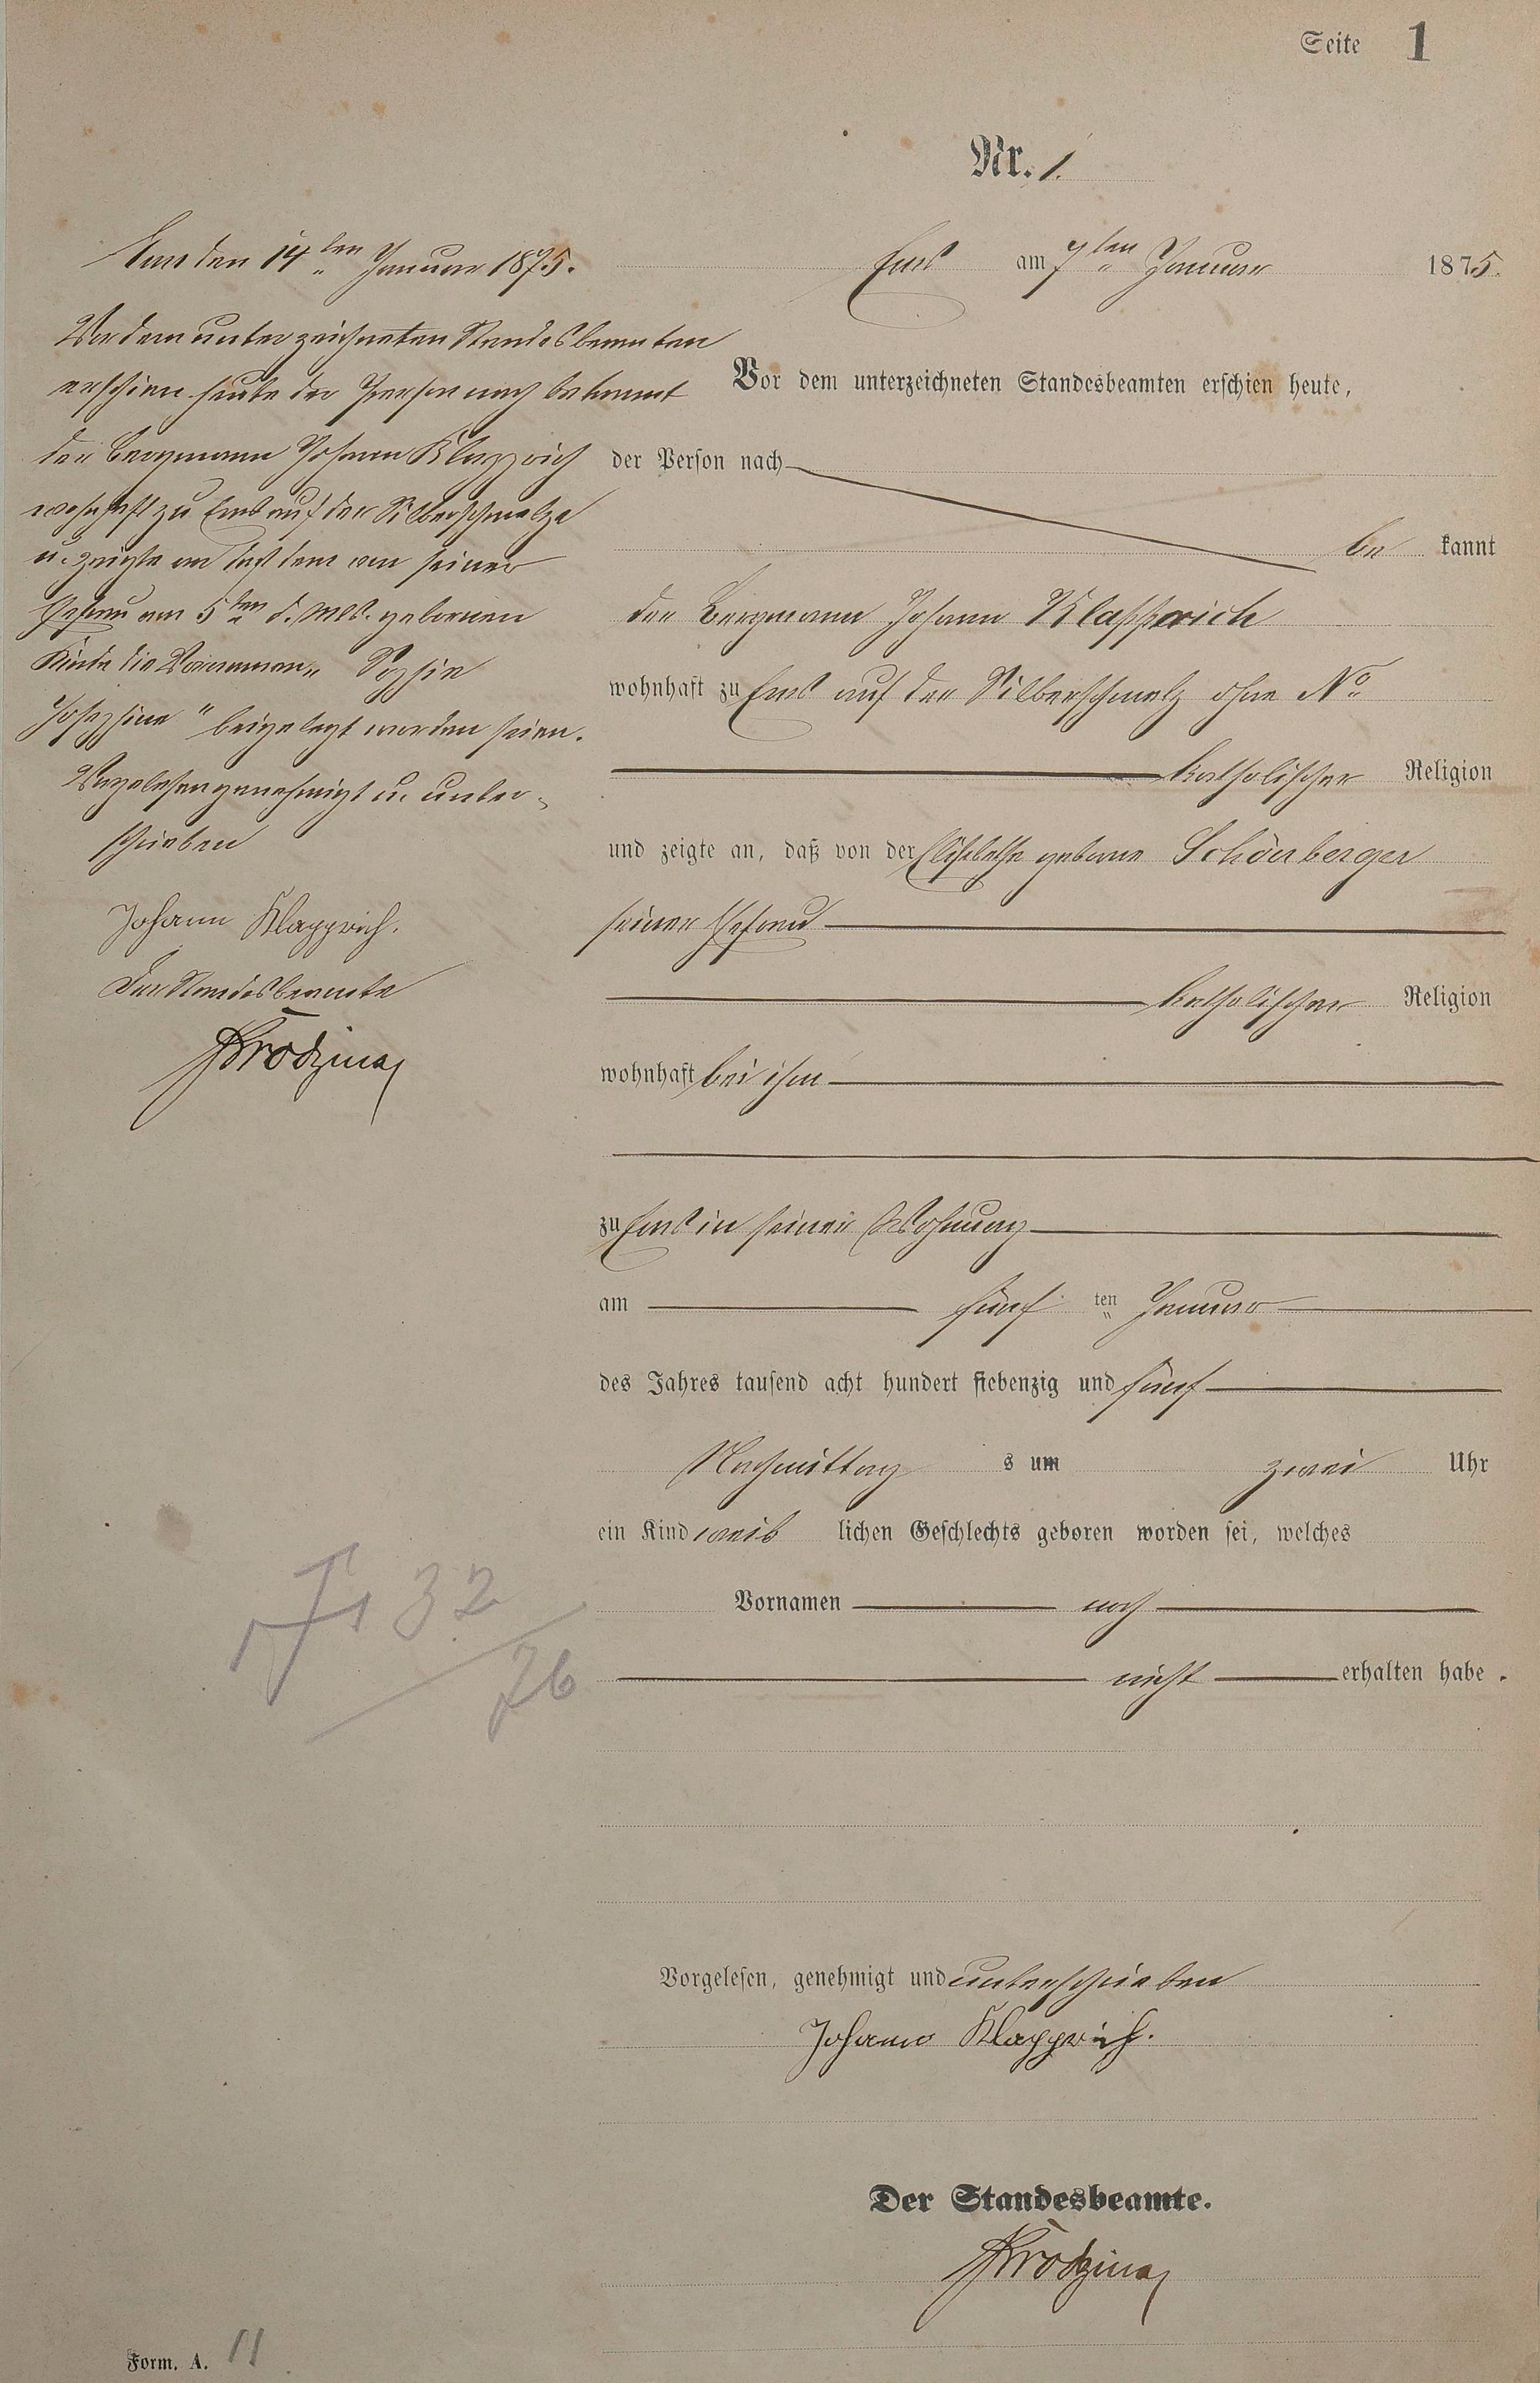 Seite 1
Nr. 1.
Ems am 7ten Januar 1875.
Vor dem unterzeichneten Standesbeamten erschien heute,
der Person nach
be kannt
der Bergmann Johann Klapprich
wohnhaft zu Ems auf der Silberschmelz ohne No
katholischer Religion
und zeigte an, daß von der Elisabethe geborne Schönberger
seiner Ehefrau
katholischer Religion
wohnhaft bei ihm
zu Ems in seiner Wohnung
am fünf ten Januar
des Jahres tausend acht hundert siebenzig und fünf
Nachmittag s um zwei Uhr
ein Kind weib lichen Geschlechts geboren worden sei, welches
Vornamen noch
nicht erhalten habe.
Vorgelesen, genehmigt und unterschrieben
Johann Klapprich.
Der Standesbeamte.
Ems den 14ten Januar 1875.
Vor dem unterzeichneten Standesbeamten
erschien heute der Person nach bekannt
der Bergmann Johann Klapprich
wohnhaft zu Ems auf der Silberschmelze
u. zeigte an daß dem von seiner
Ehefrau am 5ten d. Mts. gebornen
Kinde die Vornamen „Sophie
Josephine" beigelegt worden seien.
Vorgelesen genehmigt u. unter-
schrieben
Johann Klapprich.
Der Standesbeamte
32
76
Form. A. 11